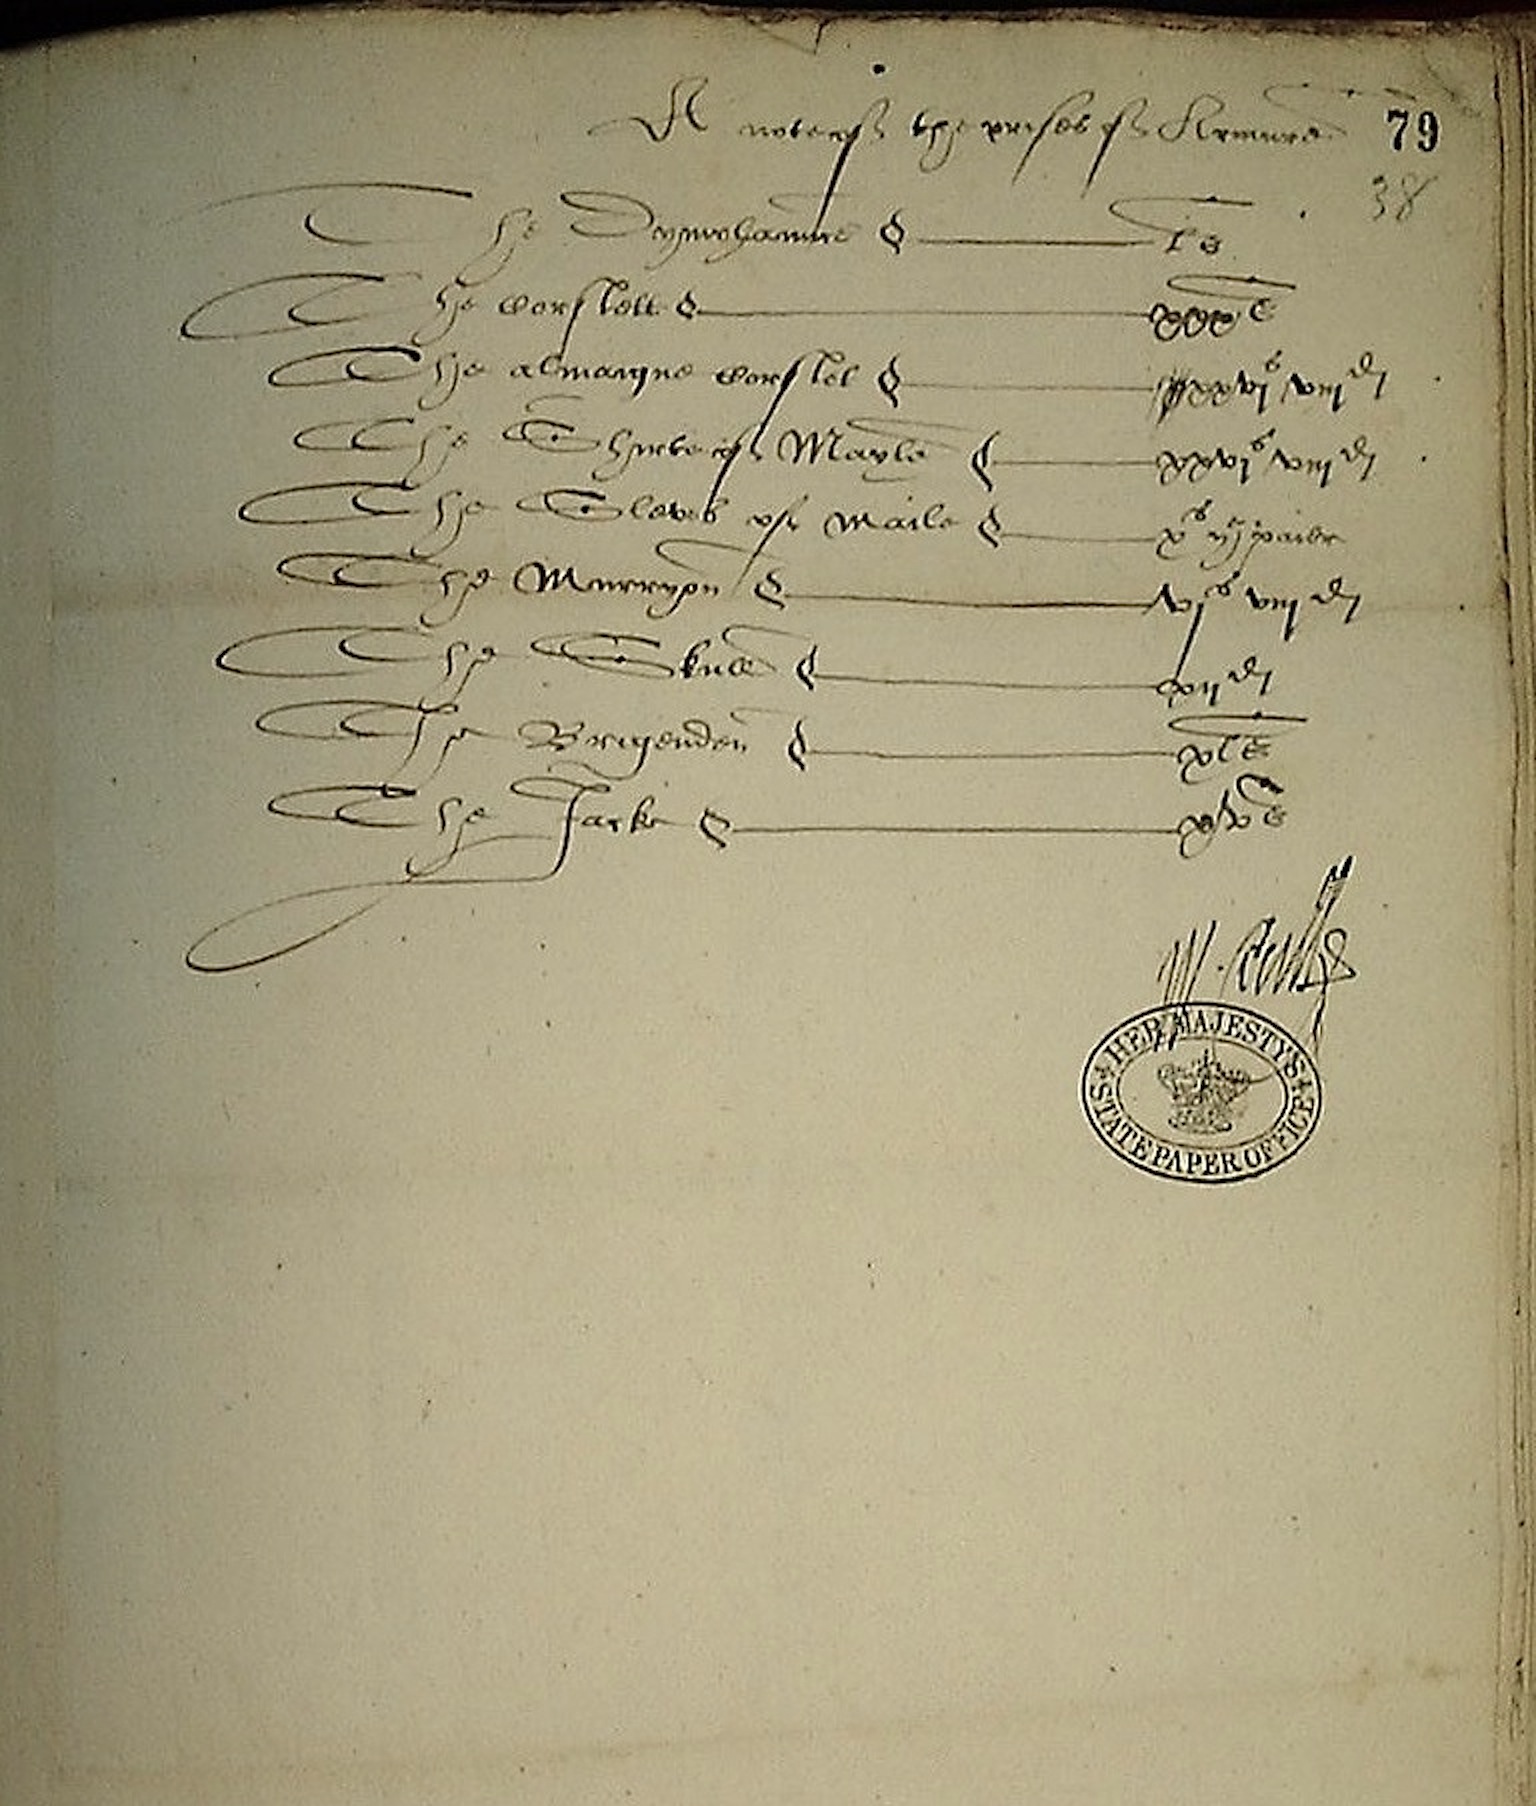 A note of the prises of Armure 79
38
The Dymyhaunce ls
The corslett xxxs
The almaigne corslet xxvis viiid
The Shirte of Mayle xxvis viiid
The Sleves of maile xs ye paire
The Murryon vis viiid
The Skull xiid
The Brigenden xls
The Jacke
HER MAJESTY'S STATE PAPER OFFICE